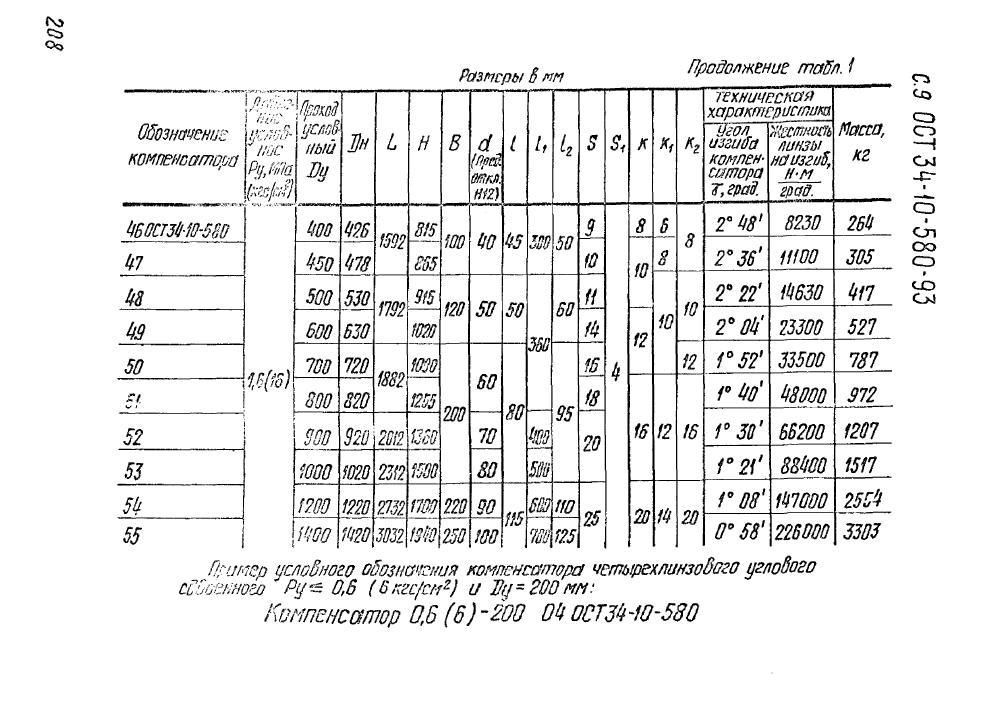 208
С.9 ОСТ 34-10-580-93
Размеры в мм
Продолжение табл. 1
Обозначение компенсатора | условное Ру, МПа (кгс/см²) | Проход условный Dу | Dн | L | H | B | d (пред. откл. H12) | l | l₁ | l₂ | S | S₁ | K | K₁ | K₂ | Техническая характеристика | Масса, кг
Угол изгиба компенсатора γ, град. | Жесткость линзы на изгиб, Н·м/град.
46 ОСТ34-10-580 | 1,6(16) | 400 | 426 | 1592 | 815 | 100 | 40 | 45 | 300 | 50 | 9 | 4 | 8 | 6 | 8 | 2° 48' | 8230 | 264
47 | 450 | 478 | 865 | 10 | 10 | 8 | 2° 36' | 11100 | 305
48 | 500 | 530 | 1792 | 915 | 120 | 50 | 50 | 360 | 60 | 11 | 10 | 10 | 2° 22' | 14630 | 417
49 | 600 | 630 | 1020 | 14 | 12 | 2° 04' | 23300 | 527
50 | 700 | 720 | 1882 | 200 | 60 | 80 | 95 | 16 | 12 | 1° 52' | 33500 | 787
51 | 800 | 820 | 1255 | 18 | 16 | 12 | 16 | 1° 40' | 48000 | 972
52 | 900 | 920 | 2012 | 1360 | 70 | 400 | 20 | 1° 30' | 66200 | 1207
53 | 1000 | 1020 | 2312 | 1500 | 80 | 500 | 1° 21' | 88400 | 1517
54 | 1200 | 1220 | 2732 | 1700 | 220 | 90 | 115 | 600 | 110 | 25 | 20 | 14 | 20 | 1° 08' | 147000 | 2554
55 | 1400 | 1420 | 3032 | 1940 | 250 | 100 | 700 | 125 | 0° 58' | 226000 | 3303
Пример условного обозначения компенсатора четырехлинзового углового
сдвоенного Ру ≤ 0,6 (6 кгс/см²) и Dу = 200 мм:
Компенсатор 0,6 (6)-200 04 ОСТ34-10-580